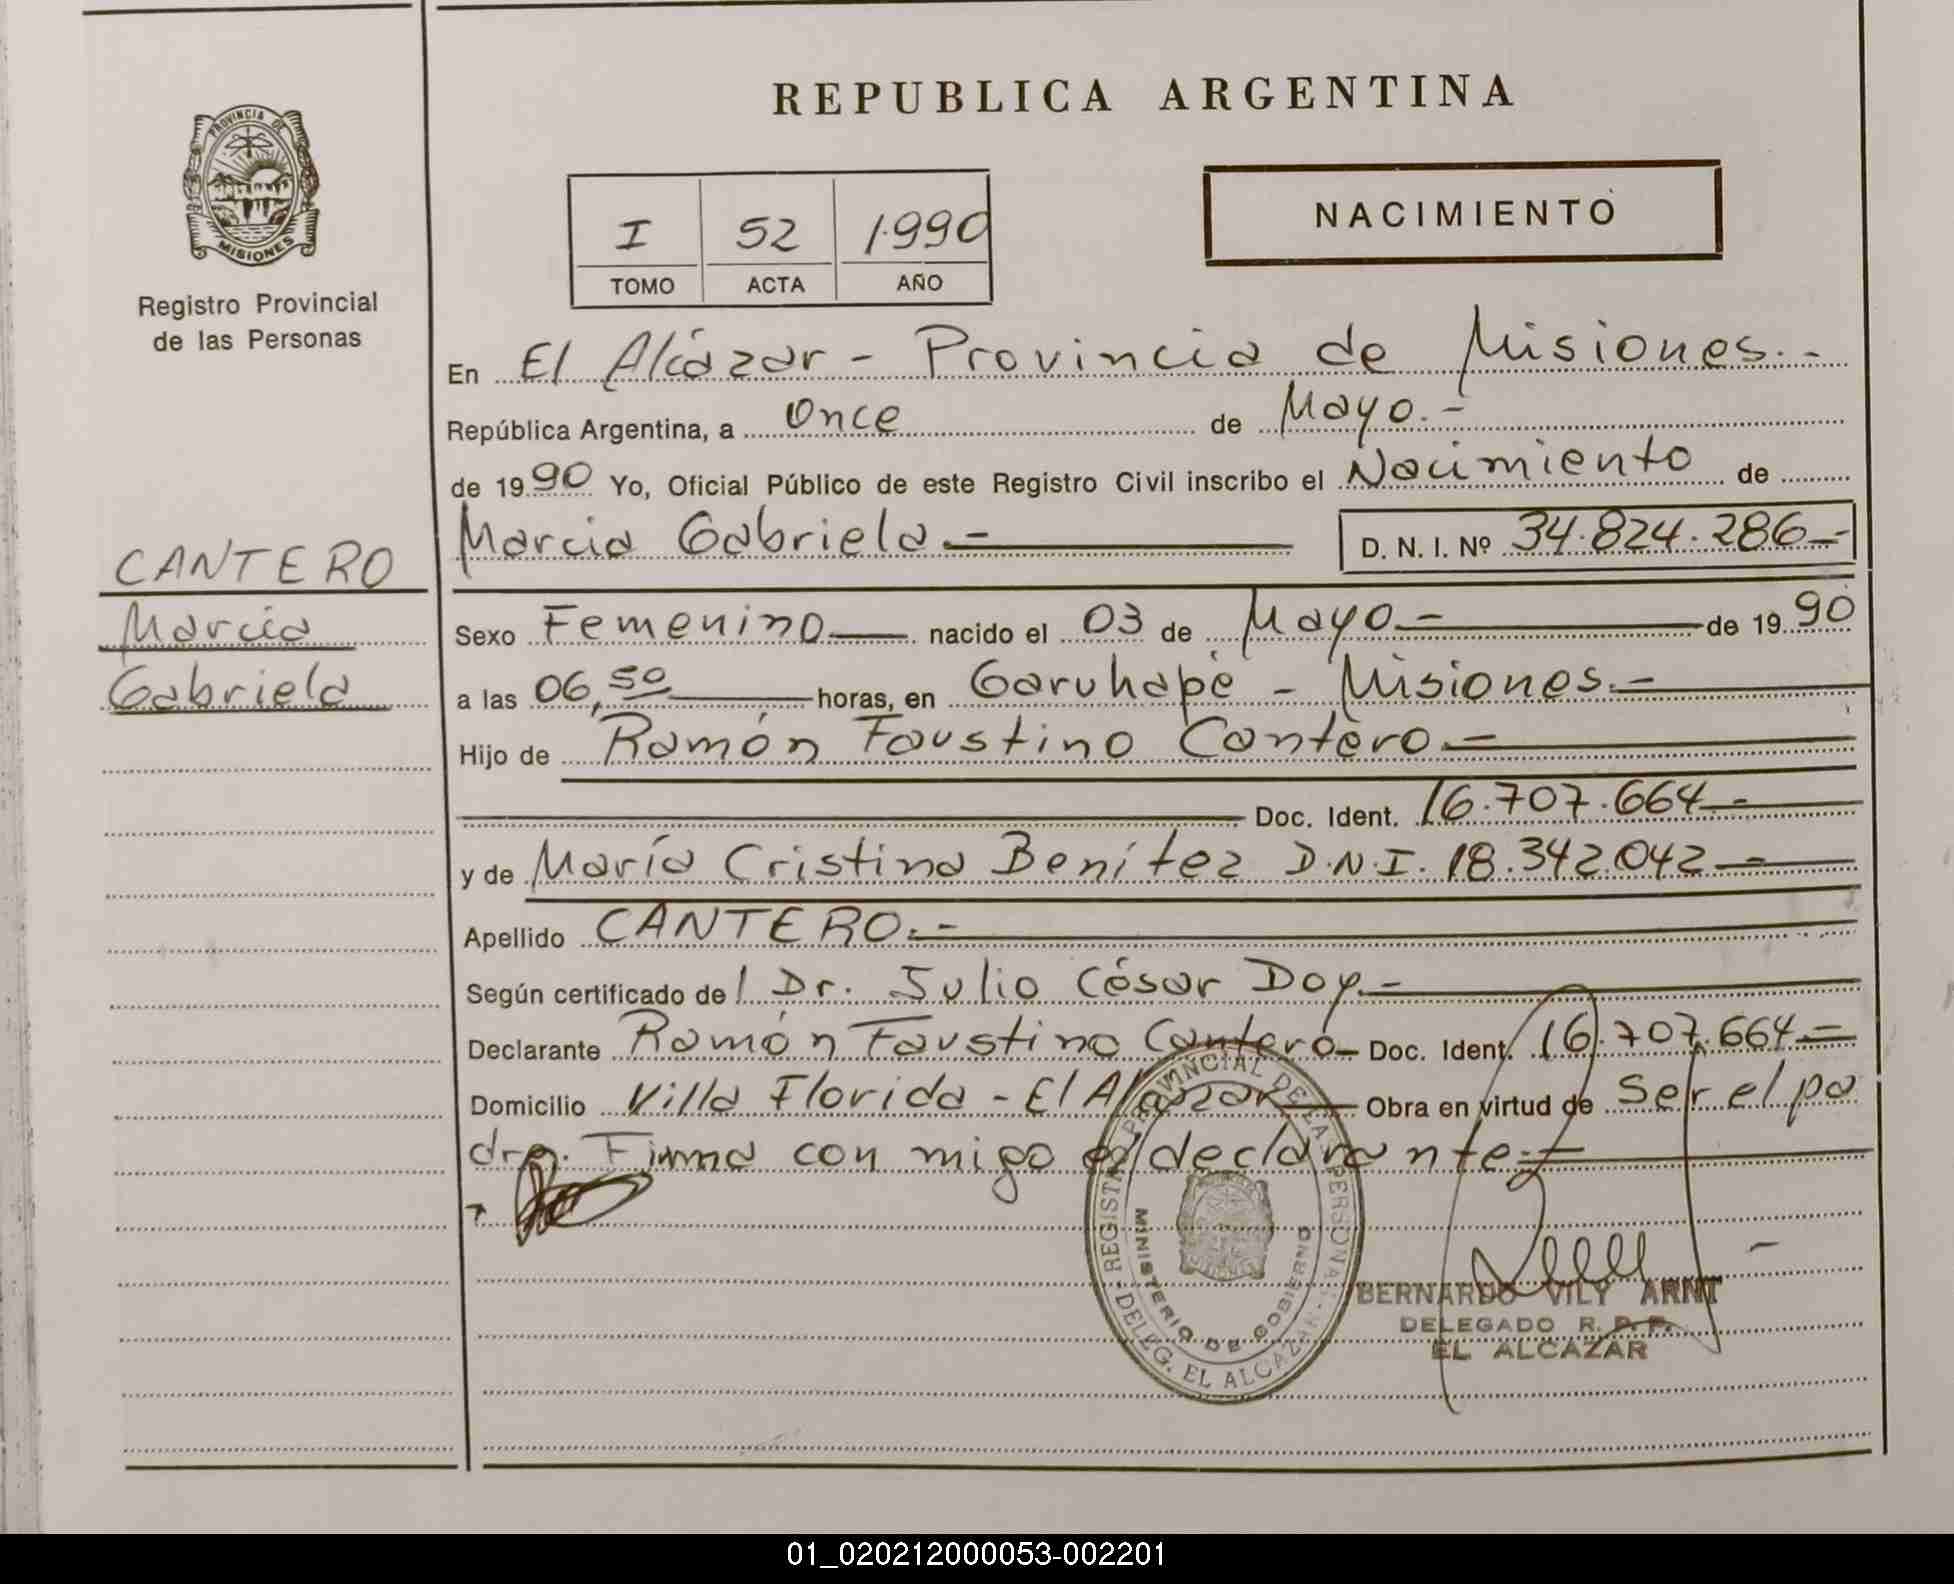 REPUBLICA ARGENTINA
PROVINCIA DE
MISIONES
Registro Provincial
de las Personas
I 52 1990
TOMO ACTA AÑO
NACIMIENTO
En El Alcázar - Provincia de Misiones.-
República Argentina, a Once de Mayo.-
de 1990 Yo, Oficial Público de este Registro Civil inscribo el Nacimiento de
Marcia Gabriela.- D. N. I. Nº 34.824.286-
CANTERO
Marcia
Gabriela
Sexo Femenino nacido el 03 de Mayo.- de 1990
a las 06,50 horas, en Garuhapé - Misiones.-
Hijo de Ramón Faustino Cantero.-
Doc. Ident. 16.707.664.-
y de María Cristina Benítez D.N.I. 18.342.042.-
Apellido CANTERO.-
Según certificado del Dr. Julio César Doy.-
Declarante Ramón Faustino Cantero- Doc. Ident. 16.707.664=
Domicilio Villa Florida - El Alcázar Obra en virtud de Ser el pa
dre. Firma con migo el declarante.-
REGISTRO PROVINCIAL DE LAS PERSONAS
MINISTERIO DE GOBIERNO
DELEG. EL ALCAZAR
BERNARDO VILY ARNT
DELEGADO R. P. P.
EL ALCAZAR
01_020212000053-002201